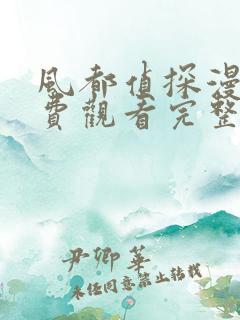 風都偵探漫
費觀看完整
尹卿華
未经同意禁止转载